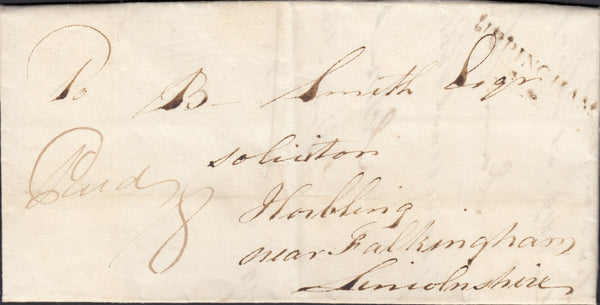 UPPINGHAM
To B- Smith Esqr
solicitor
Paid 8
Horbling
near Falkingham
Lincolnshire